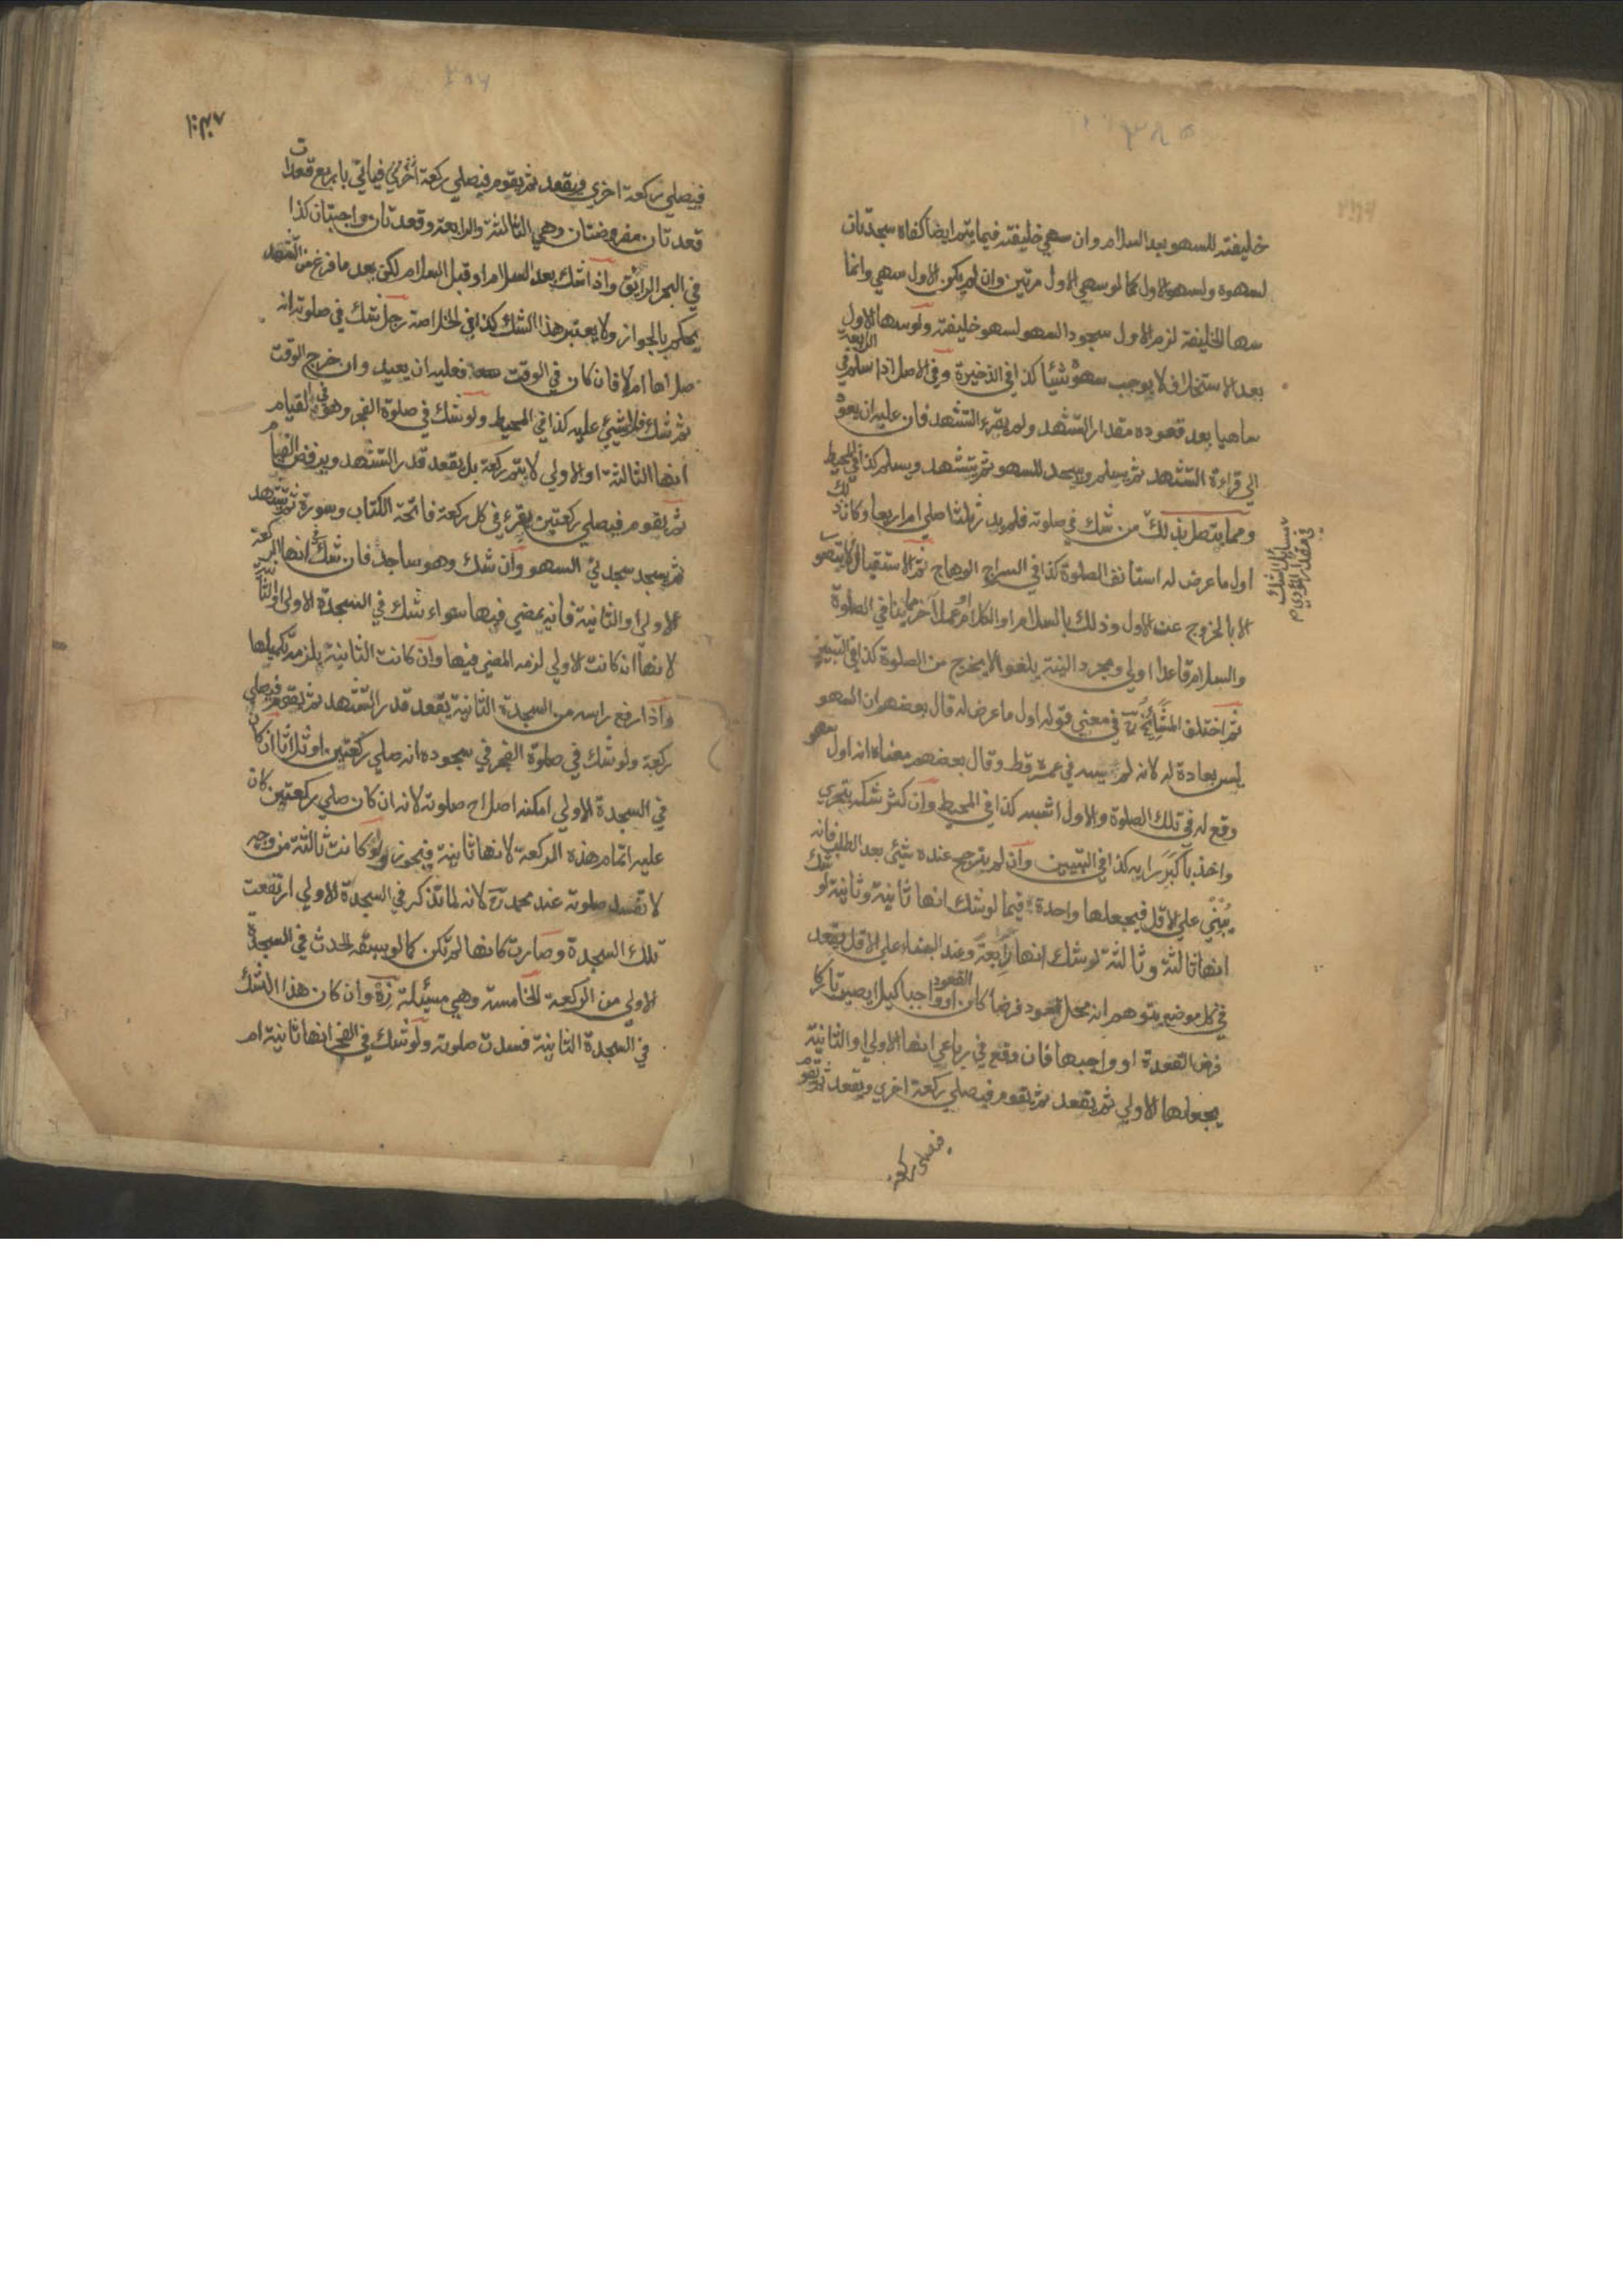 خليفته للسهو بعد السلام وان سهي خليفته فيما يتم ايضا كفاه سجدتان
لسهوه ولسهو الاول كما لو سهي الاول مرتين وان لم يكن الاول سهي وانما
سها الخليفة لزم الاول سجود السهو لسهو خليفته ولو سها الاول
بعد الاستخلاف لا يوجب سهوه شيئا كذا في الذخيرة وفي الاصل اذا سلم في الرابعة
ساهيا بعد قعوده مقدار التشهد ولم يقرء التشهد فان عليه ان يعود
الي قراءة التشهد ثم يسلم ويسجد للسهو ثم يتشهد ويسلم كذا في المحيط
ومما يتصل بذلك من شك في صلوته فلم يدر اثلثا صلي ام اربعا وكان ذلك
اول ما عرض له استانف الصلوة كذا في السراج الوهاج ثم الاستقبال لا يتصور
الا بالخروج عن الاول وذلك بالسلام او الكلام او عمل آخر مما ينافي الصلوة
والسلام قاعدا اولي ومجرد النية يلغو لا يخرج من الصلوة كذا في التبيين
ثم اختلف المشائخ رح في معني قوله اول ما عرض له قال بعضهم ان السهو
ليس بعادة له لانه لم يسه في عمره قط وقال بعضهم معناه انه اول سهو
وقع له في تلك الصلوة والاول اشبه كذا في المحيط وان كثر شكه يتحري
واخذ باكبر رايه كذا في التبيين وان لم يترجح عنده شيئ بعد الطلب فانه
يبني علي الاقل فيجعلها واحدة فيما لو شك انها ثانية وثانية لو شك
انها ثالثة وثالثة لو شك انها رابعة وعند البناء علي الاقل يقعد
في كل موضع يتوهم انه محل القعود فرضا كان القعود او واجبا كيلا يصير تاركا
فرض القعدة او واجبها فان وقع في رباعي انها الاولي او الثانية
يجعلها الاولي ثم يقعد ثم يقوم فيصلي ركعة اخري ويقعد ثم يقوم
فيصلي ركعة
مسائل الشك
في مقدار المؤدي
فيصلي ركعة اخري ويقعد ثم يقوم فيصلي ركعة اخري فياتي باربع قعدات
قعدتان مفروضتان وهي الثالثة والرابعة وقعدتان واجبتان كذا
في البحر الرائق واذا شك بعد السلام او قبل السلام لكن بعد ما فرغ من التشهد
يحكم بالجواز ولا يعتبر هذا الشك كذا في الخلاصة رجل شك في صلوته انه
صلاها ام لا فان كان في الوقت فعليه ان يعيد وان خرج الوقت
ثم شك فلا شيئ عليه كذا في المحيط ولو شك في صلوة الفجر وهو في القيام
انها الثالثة او الاولي لا يتم ركعة بل يقعد قدر التشهد ويرفض القيام
ثم يقوم فيصلي ركعتين يقرء في كل ركعة فاتحة الكتاب وسورة ثم يتشهد
ثم يسجد سجدتي السهو وان شك وهو ساجد فان شك في انها الركعة
الاولي او الثانية فانه يمضي فيها سواء شك في السجدة الاولي او الثانية
لانها ان كانت الاولي لزمه المضي فيها وان كانت الثانية يلزمه تكميلها
واذا رفع راسه من السجدة الثانية يقعد قدر التشهد ثم يقوم فيصلي
ركعة ولو شك في صلوة الفجر في سجوده انه صلي ركعتين او ثلاثا ان كان
في السجدة الاولي امكنه اصلاح صلوته لانه ان كان صلي ركعتين كان
عليه اتمام هذه الركعة لانها ثانية فيجوز ولو كانت ثالثة من وجه
لا تفسد صلوته عند محمد رح لانه لما تذكر في السجدة الاولي ارتفعت
تلك السجدة وصارت كانها لم تكن كما لو سبقه الحدث في السجدة
الاولي من الركعة الخامسة وهي مسئلة زه وان كان هذا الشك
في السجدة الثانية فسدت صلوته ولو شك في الفجر انها ثانية ام